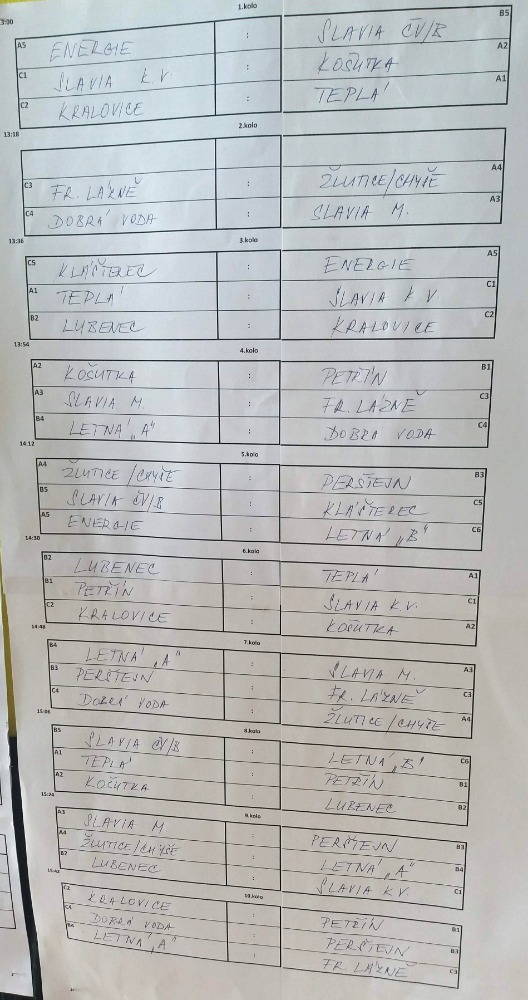 1.kolo
3:00
A5 ENERGIE : SLAVIA ČV/B B5
C1 SLAVIA K.V. : KOŠUTKA A2
C2 KRALOVICE : TEPLÁ A1
13:18 2.kolo
:
C3 FR. LÁZNĚ : ŽLUTICE/CHYŠE A4
C4 DOBRÁ VODA : SLAVIA M. A3
13:36 3.kolo
C5 KLÁŠTEREC : ENERGIE A5
A1 TEPLÁ : SLAVIA K V C1
B2 LUBENEC : KRALOVICE C2
13:54 4.kolo
A2 KOŠUTKA : PETŘÍN B1
A3 SLAVIA M. : FR. LÁZNĚ C3
B4 LETNÁ „A" : DOBRÁ VODA C4
14:12 5.kolo
A4 ŽLUTICE /CHYŠE : PERŠTEJN B3
B5 SLAVIA ČV/B : KLÁŠTEREC C5
A5 ENERGIE : LETNÁ „B" C6
14:30 6.kolo
B2 LUBENEC : TEPLÁ A1
B1 PETŘÍN : SLAVIA K.V. C1
C2 KRALOVICE : KOŠUTKA A2
14:48 7.kolo
B4 LETNÁ „A" : SLAVIA M. A3
B3 PERŠTEJN : FR. LÁZNĚ C3
C4 DOBRÁ VODA : ŽLUTICE/CHYŠE A4
15:06 8.kolo
B5 SLAVIA ČV/B : LETNÁ „B" C6
A1 TEPLÁ : PETŘÍN B1
A2 KOŠUTKA : LUBENEC B2
15:24 9.kolo
A3 SLAVIA M. : PERŠTEJN B3
A4 ŽLUTICE/CHYŠE : LETNÁ „A" B4
B2 LUBENEC : SLAVIA K.V. C1
15:42 10.kolo
C2 KRALOVICE : PETŘÍN B1
C4 DOBRÁ VODA : PERŠTEJN B3
B4 LETNÁ „A" : FR. LÁZNĚ C3